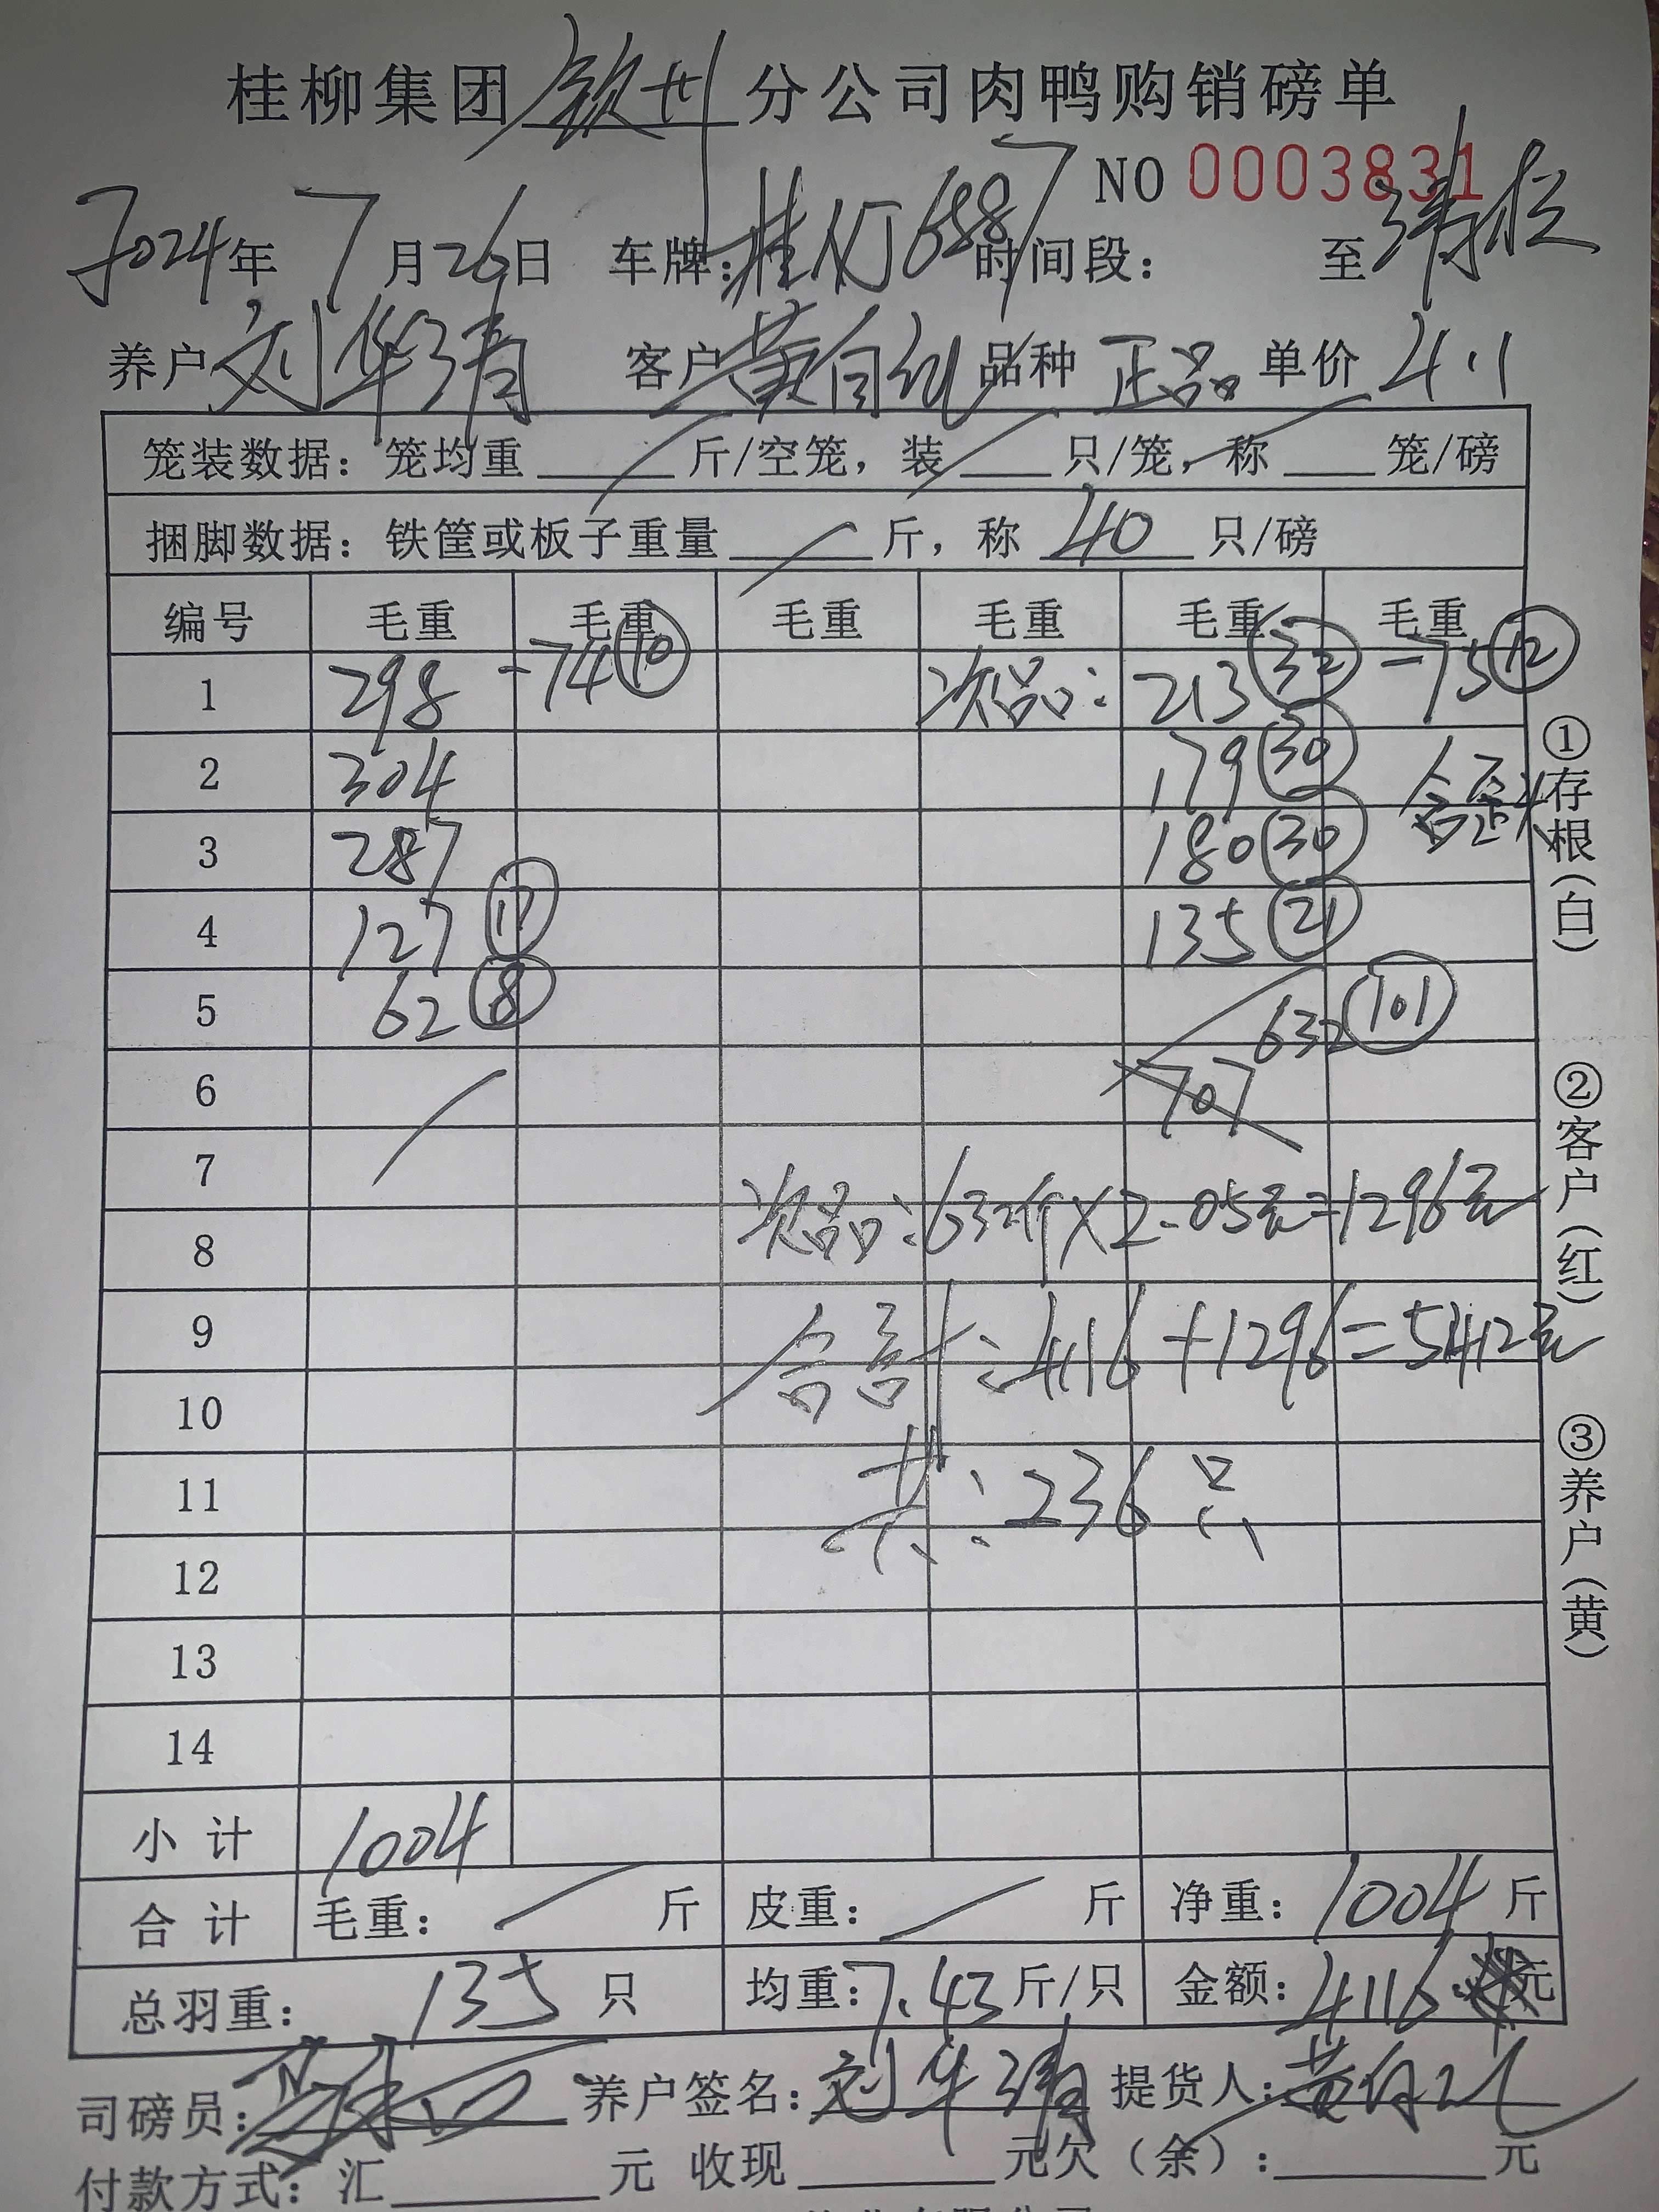 桂柳集团 钦州 分公司肉鸭购销磅单
NO 0003831
2024年 7月26日 车牌: 时间段: 至 清栏
养户 刘华清 客户 黄自 品种 正品 单价 4.1
笼装数据: 笼均重 斤/空笼, 装 只/笼, 称 笼/磅
捆脚数据: 铁筐或板子重量 斤, 称 40 只/磅
编号 毛重 毛重 毛重 毛重 毛重 毛重
1 298 -74 10 次品: 213 32 -75 12
2 304 179 30 含歪头
3 287 180 30
4 127 17 135 21
5 62 8 632 101
6 707
7
次品:632斤×2.05元=1296元
8
9
合計:4116+1296=5412元
10
11 共:236只
12
13
14
小计 1004
合计 毛重: 斤 皮重: 斤 净重: 1004 斤
总羽重: 135 只 均重: 7.43 斤/只 金额: 4116. 元
司磅员: 养户签名: 刘华清 提货人: 黄自
付款方式: 汇 元 收现 元欠(余): 元
①存根(白) ②客户(红) ③养户(黄)